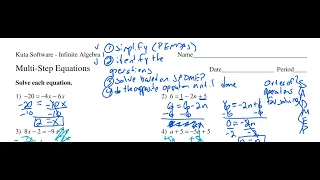 Kuta Software - Infinite Algebra 1
Name
Multi-Step Equations
Date
Period
Solve each equation.
1) simplify (PEMDAS)
2) identify the
operations
3) solve based on SADMEP
4) do the opposite operation until done
order of
operations
for solving
S
A
D
M
E
P
1) -20 = -4x - 6x
-20 = -10x
-10 -10
2 = x
2) 6 = 1 - 2n + 5
6 = 6 - 2n
6 = -2n + 6
-6 -6
0 = -2n
-2 -2
3) 8x - 2 = -9
4) a + 5 = -5a + 5